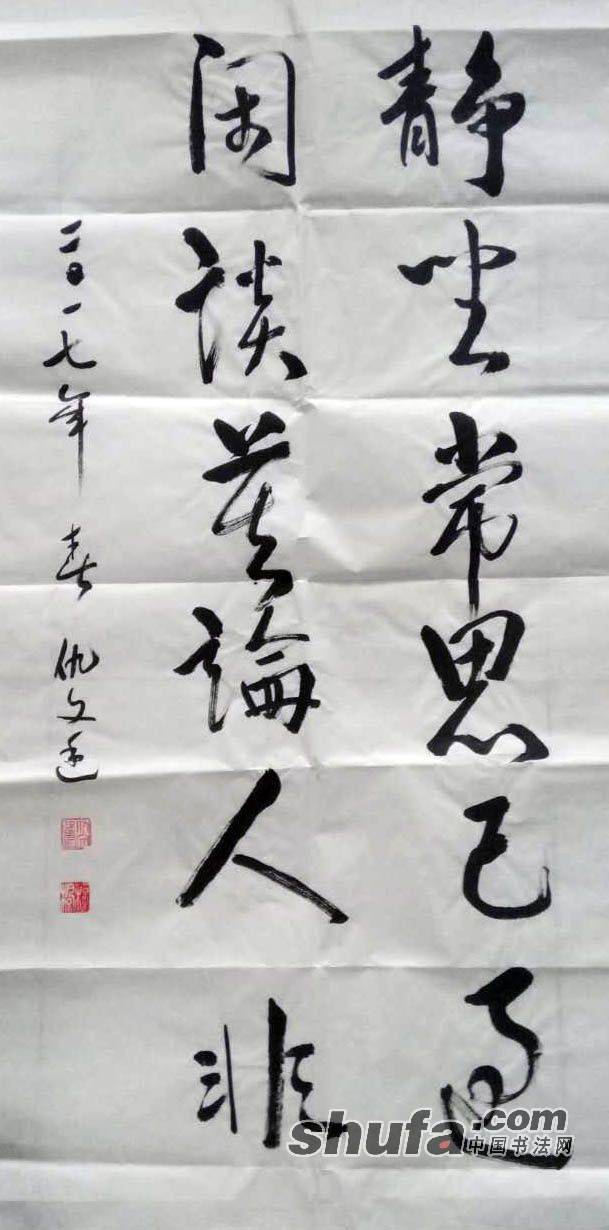 静坐常思己过
闲谈莫論人非
二〇一七年春 仇文
shufa.com
中国书法网